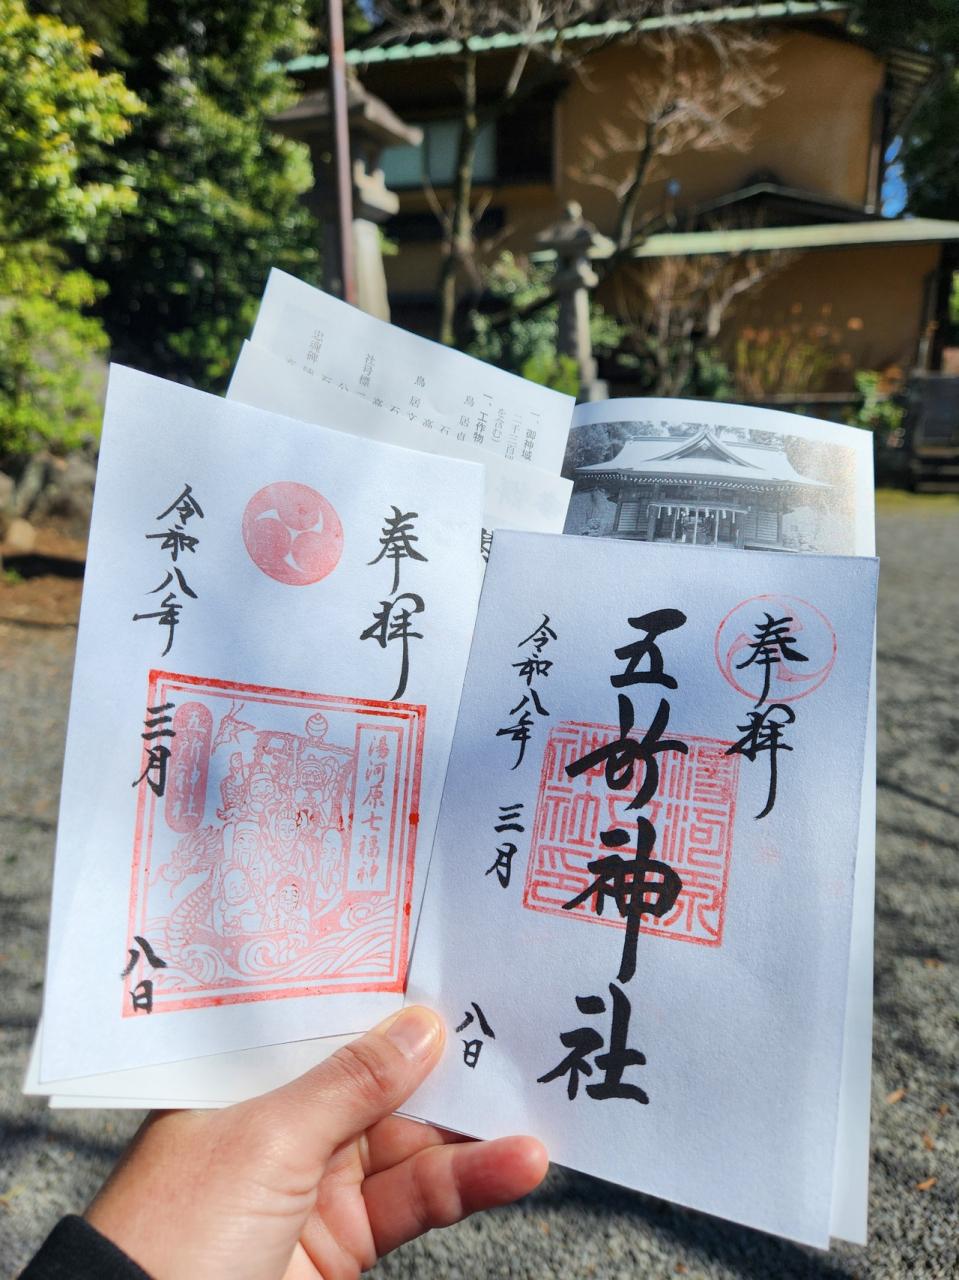 一、御神域
二千三百
を含む）
一、工作物
鳥居
鳥居
社号標
忠魂碑
奉拝
湯河原七福神
五所神社
令和八年三月八日
奉拝
五所神社
湯河原
神社印
令和八年三月八日